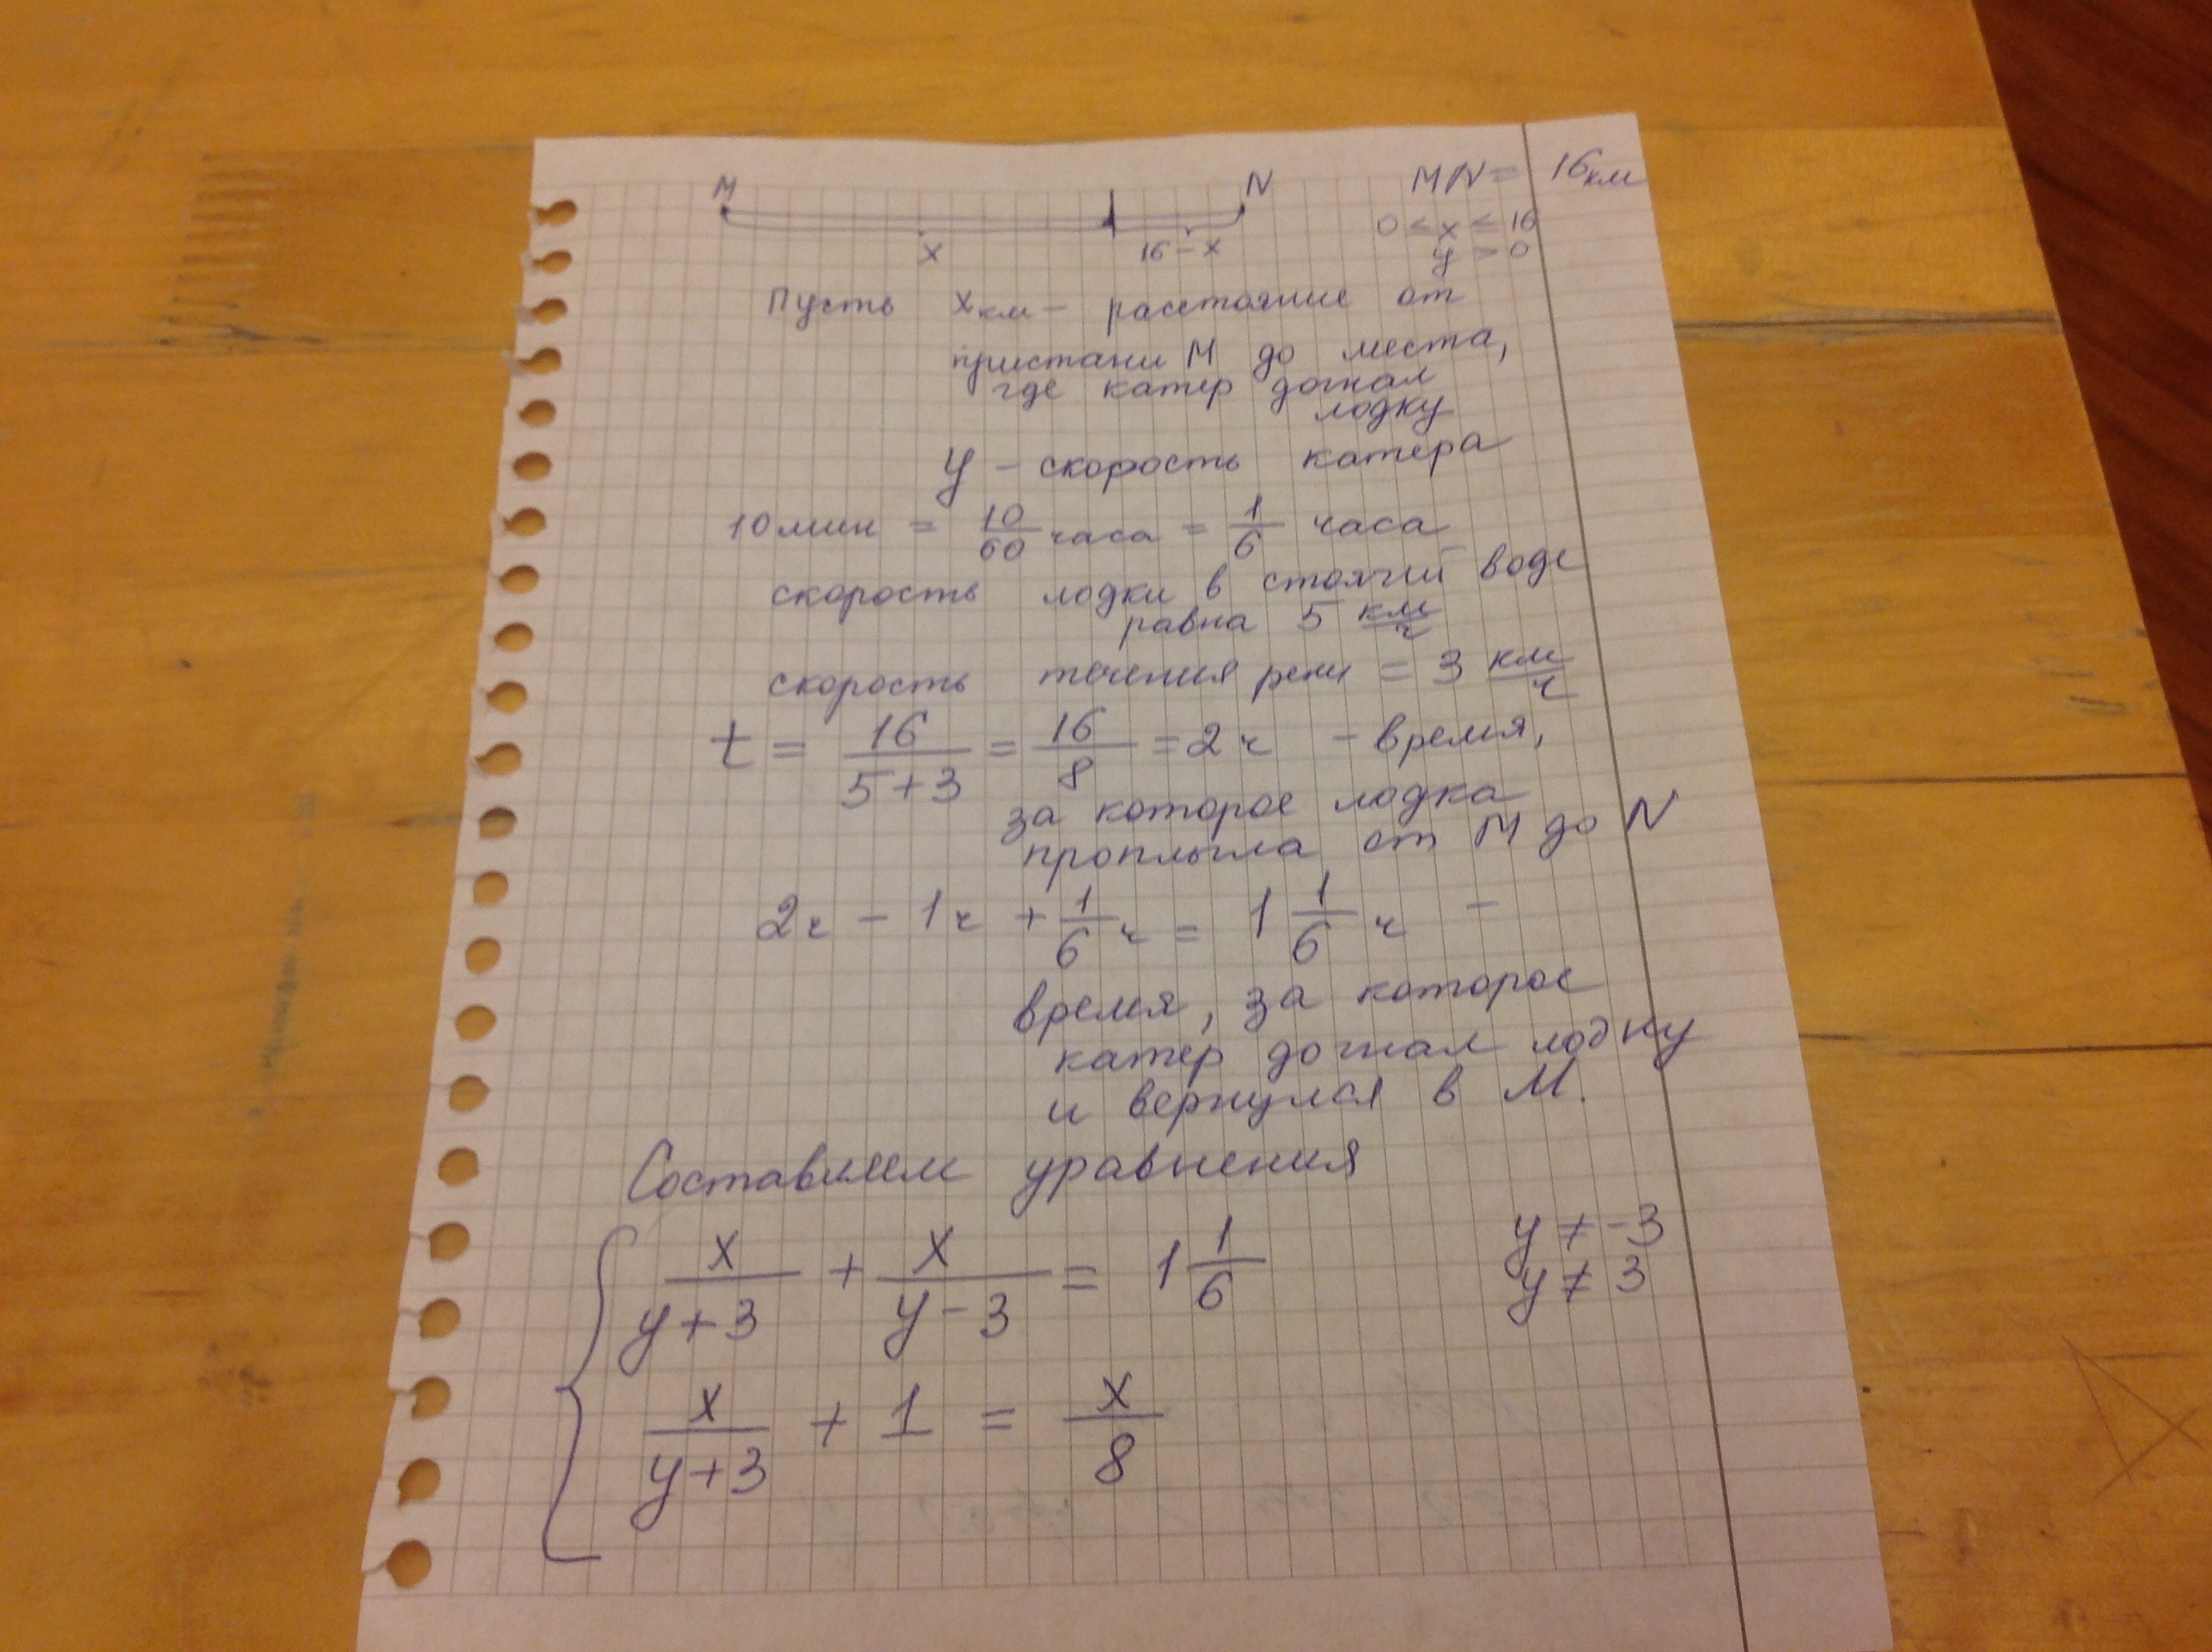 M N MN = 16 км
x 16 - x 0 ≤ x ≤ 16
y > 0
Пусть x км — расстояние от
пристани М до места,
где катер догнал
лодку
y — скорость катера
10 мин = 10/60 часа = 1/6 часа
скорость лодки в стоячий воде
равна 5 км/ч
скорость течения реки = 3 км/ч
t = 16/(5+3) = 16/8 = 2ч — время,
за которое лодка
проплыла от М до N
2ч — 1ч + 1/6 ч = 1 1/6 ч —
время, за которое
катер догнал лодку
и вернулся в М.
Составляем уравнения
x/(y+3) + x/(y-3) = 1 1/6 y ≠ -3
y ≠ 3
x/(y+3) + 1 = x/8